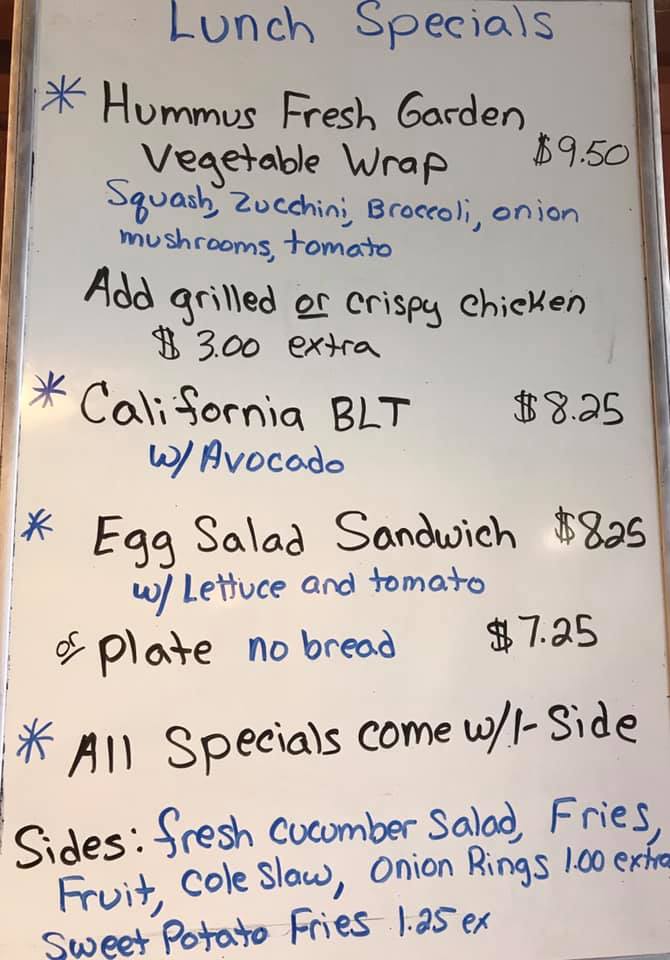 Lunch Specials
* Hummus Fresh Garden
Vegetable Wrap $9.50
Squash, Zucchini, Broccoli, onion
mushrooms, tomato
Add grilled or crispy chicken
$ 3.00 extra
* California BLT $8.25
w/ Avocado
* Egg Salad Sandwich $825
w/ Lettuce and tomato
or plate no bread $7.25
* All Specials come w/1- Side
Sides: fresh cucumber Salad, Fries,
Fruit, Cole Slaw, Onion Rings 1.00 extra
Sweet Potato Fries 1.25 ex